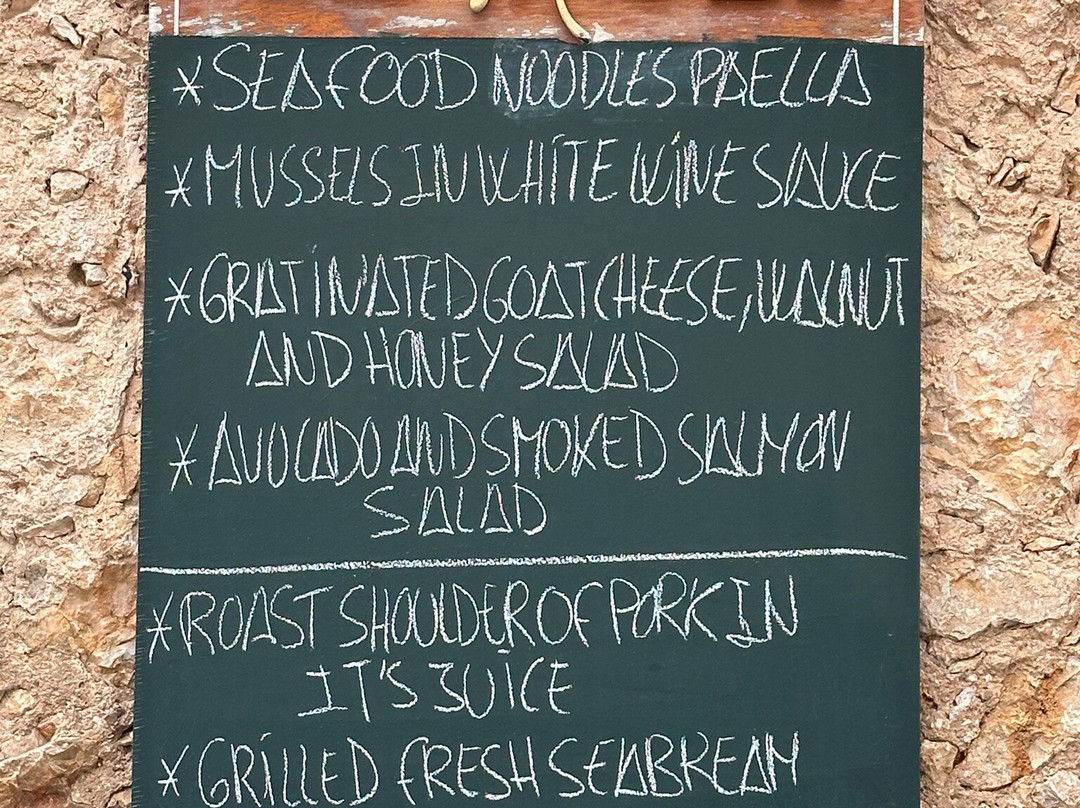 *SEAFOOD NOODLES PAELLA
*MUSSELS IN WHITE WINE SAUCE
*GRATINATED GOAT CHEESE, WALNUT
AND HONEY SALAD
*AVOCADO AND SMOKED SALMON
SALAD
*ROAST SHOULDER OF PORK IN
IT'S JUICE
*GRILLED FRESH SEABREAM